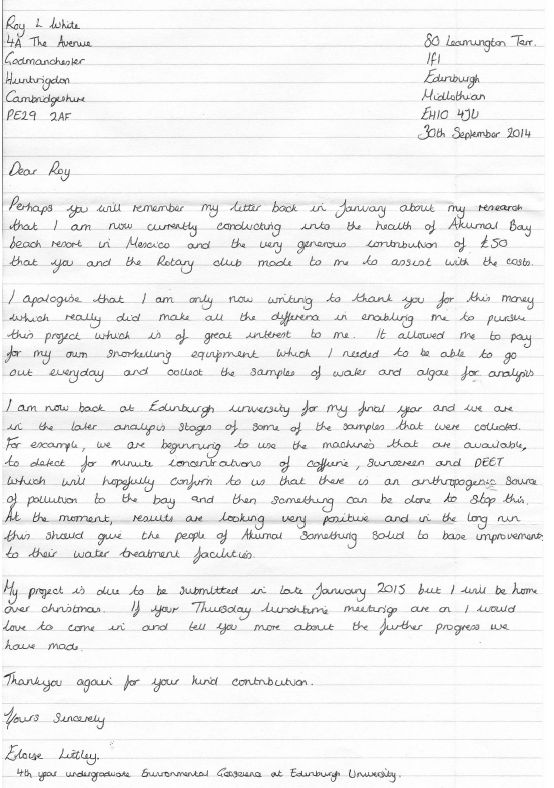 Roy L White
4A The Avenue
Godmanchester
Huntingdon
Cambridgeshire
PE29 2AF
80 Leamington Terr.
1F1
Edinburgh
Midlothian
EH10 4JU
30th September 2014
Dear Roy
Perhaps you will remember my letter back in January about my research
that I am now currently conducting into the health of Akumal Bay
beach resort in Mexico and the very generous contribution of £50
that you and the Rotary club made to me to assist with the costs.
I apologise that I am only now writing to thank you for this money
which really did make all the difference in enabling me to pursue
this project which is of great interest to me. It allowed me to pay
for my own snorkelling equipment which I needed to be able to go
out everyday and collect the samples of water and algae for analysis
I am now back at Edinburgh university for my final year and we are
in the later analysis stages of some of the samples that were collected.
For example, we are beginning to use the machines that are available,
to detect for minute concentrations of caffeine, sunscreen and DEET
which will hopefully confirm to us that there is an anthropogenic source
of pollution to the bay and then something can be done to stop this.
At the moment, results are looking very positive and in the long run
this should give the people of Akumal something solid to base improvements
to their water treatment facilities.
My project is due to be submitted in late January 2015 but I will be home
over christmas. If your Thursday lunchtime meetings are on I would
love to come in and tell you more about the further progress we
have made.
Thankyou again for your kind contribution.
Yours Sincerely
Eloise Littley.
4th year undergraduate Environmental Geoscience at Edinburgh University.